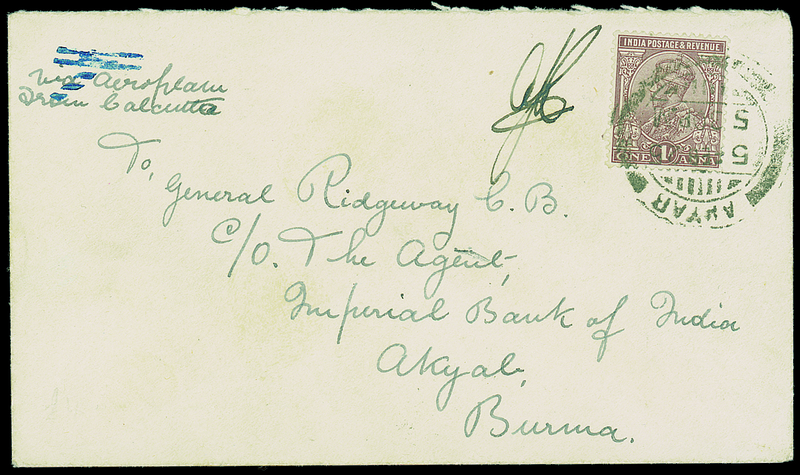 via Aeroplane
From Calcutta
INDIA POSTAGE & REVENUE
ONE 1A ANNA
5
5
AKYAB
To,
General Ridgeway C.B.
C/O. The Agent,
Imperial Bank of India
Akyab,
Burma.